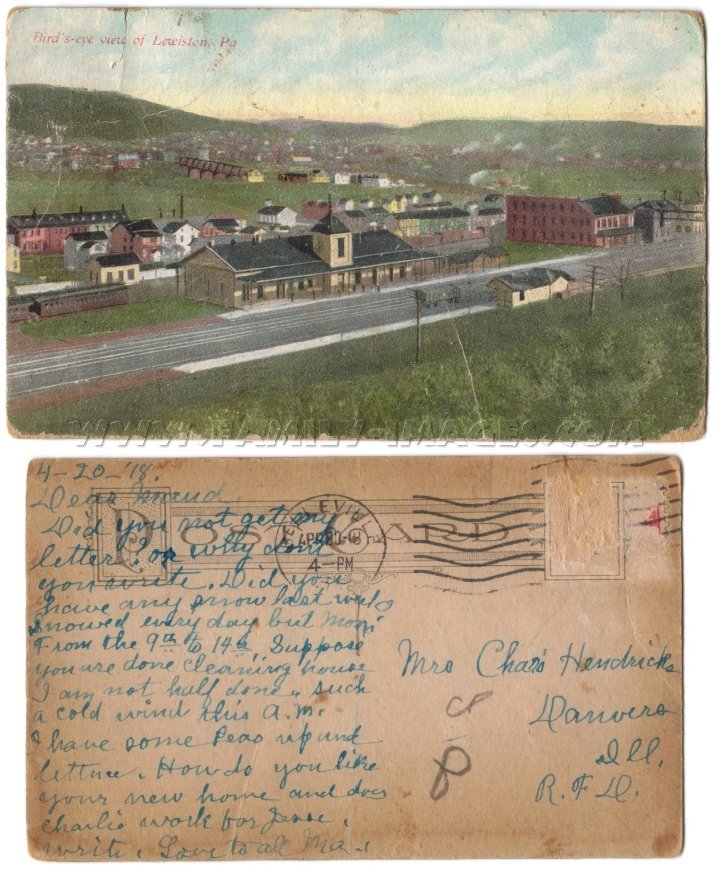 Bird's-eye view of Lewiston, Pa
WWW.FAMILY-IMAGES.COM
4-20-'18.
Dear Maud,
Did you not get my
letter, or why dont
you write. Did you
have any snow last week
Snowed every day but Mon.
From the 9th to 14th, Suppose
you are done cleaning house
I am not half done, such
a cold wind this A.M.
I have some Peas up and
lettuce. How do you like
your new home and does
Charlie work for Jesse.
write. Love to all
POST CARD
APR 20 18
4-PM
Mrs Chas Hendricks
Danvers
Ill.
R.F.D.
8